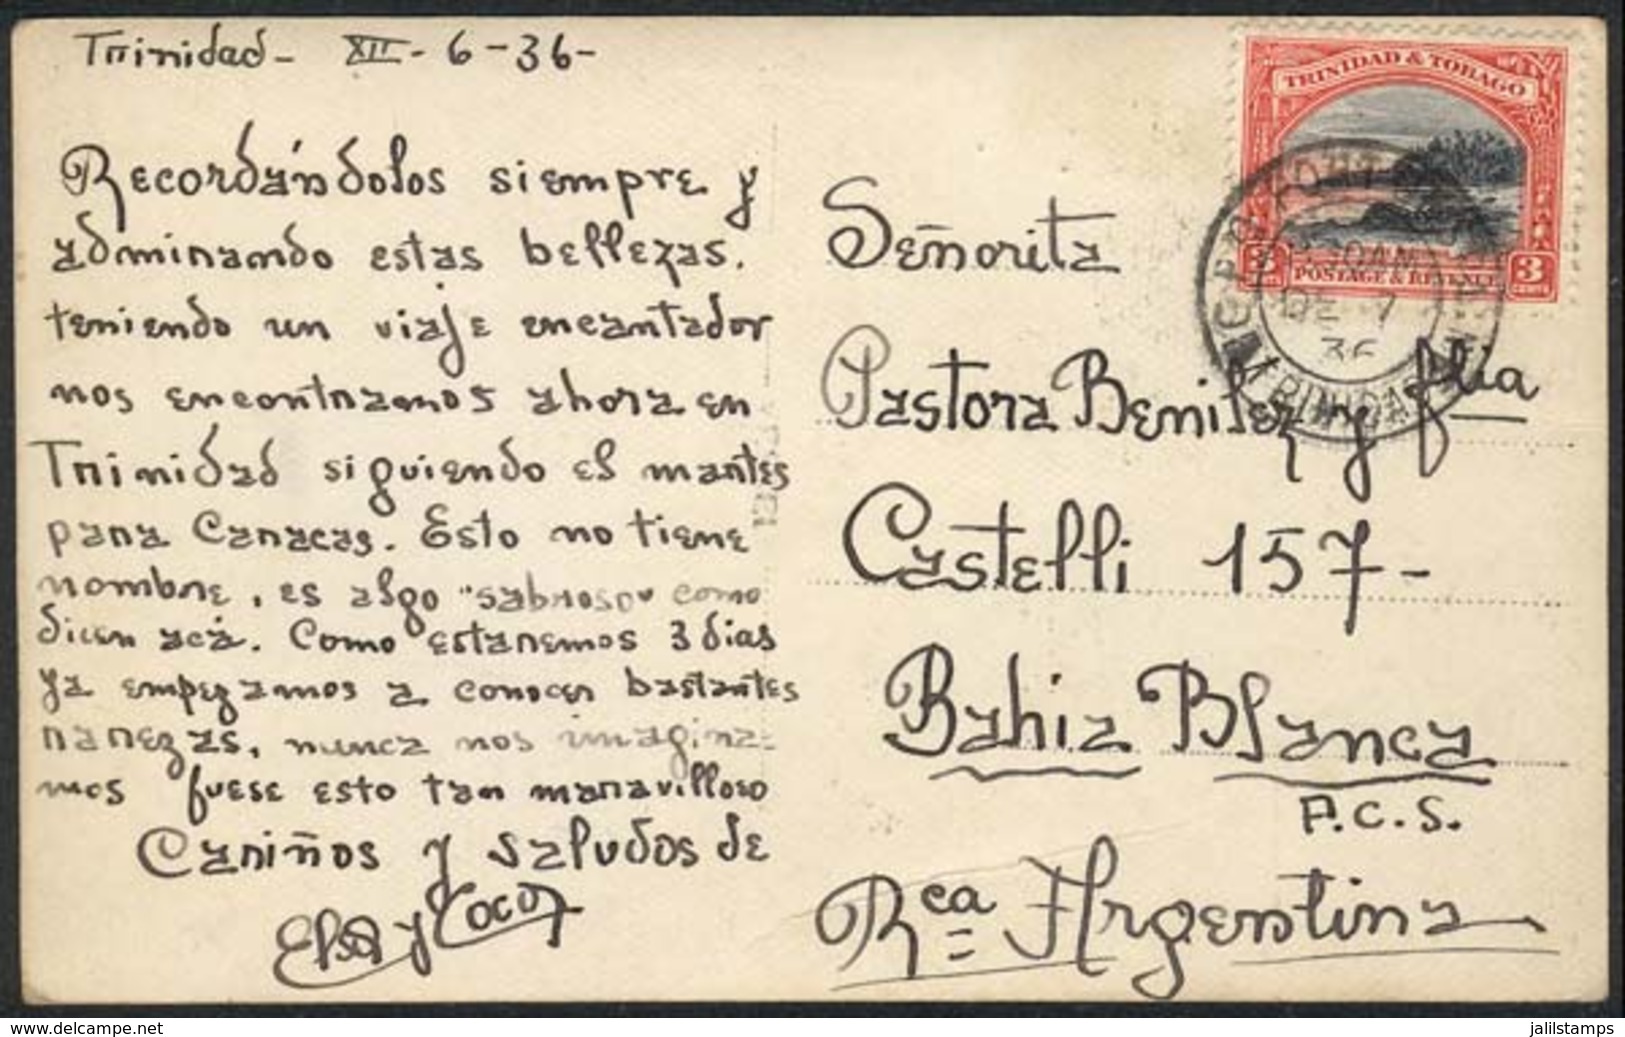 Trinidad - XII - 6 - 36 -
Recordándolos siempre y
admirando estas bellezas.
teniendo un viaje encantador
nos encontramos ahora en
Trinidad siguiendo el martes
para Caracas. Esto no tiene
nombre, es algo "sabroso" como
dicen acá. Como estaremos 3 dias
ya empezamos a conocer bastantes
rarezas, nunca nos imagina-
mos fuese esto tan maravilloso
Cariños y saludos de
Elsa y Coco
TRINIDAD & TOBAGO
3 POSTAGE & REVENUE 3
CENTS
DE 7
36
TRINIDAD
Señorita
Pastora Benitez y flia
Castelli 157-
Bahia Blanca
F.C.S.
Rca Argentina
www.delcampe.net
jalilstamps